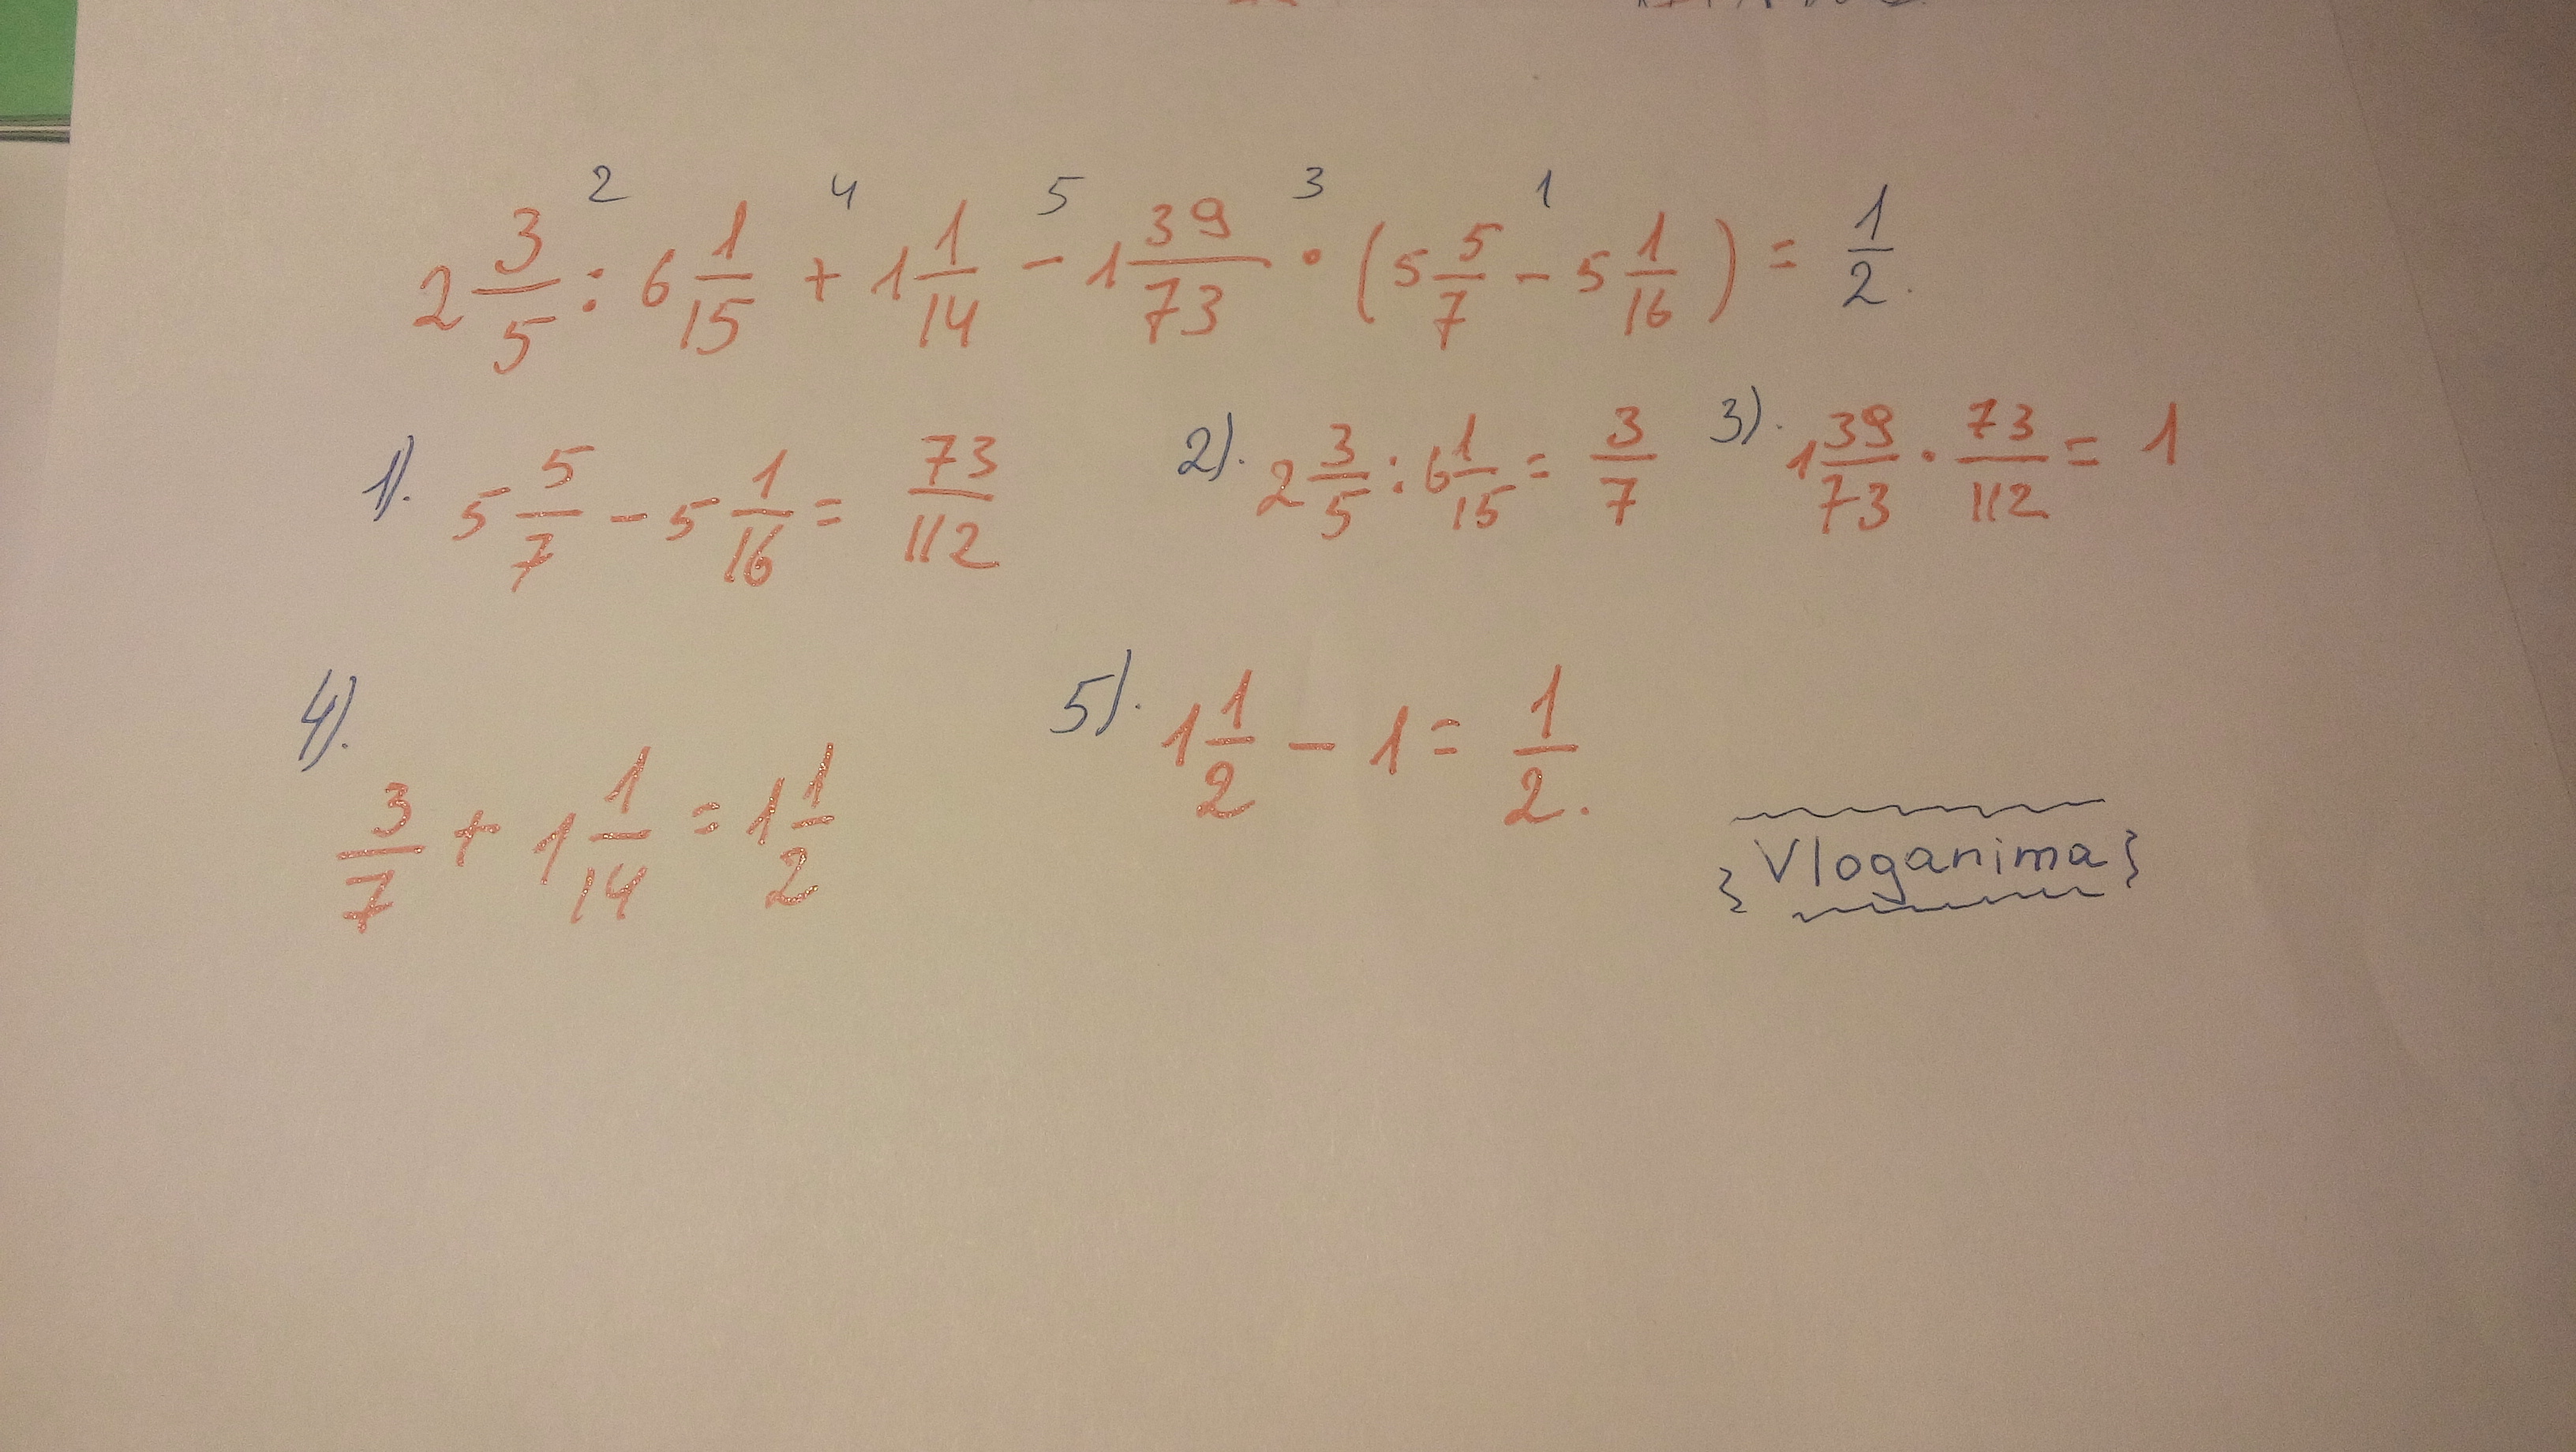 2 3/5 : 6 1/15 + 1 1/14 - 1 39/73 · (5 5/7 - 5 1/16) = 1/2.
2 4 5 3 1
1). 5 5/7 - 5 1/16 = 73/112
2). 2 3/5 : 6 1/15 = 3/7
3). 1 39/73 · 73/112 = 1
4). 3/7 + 1 1/14 = 1 1/2
5). 1 1/2 - 1 = 1/2.
Vloganima